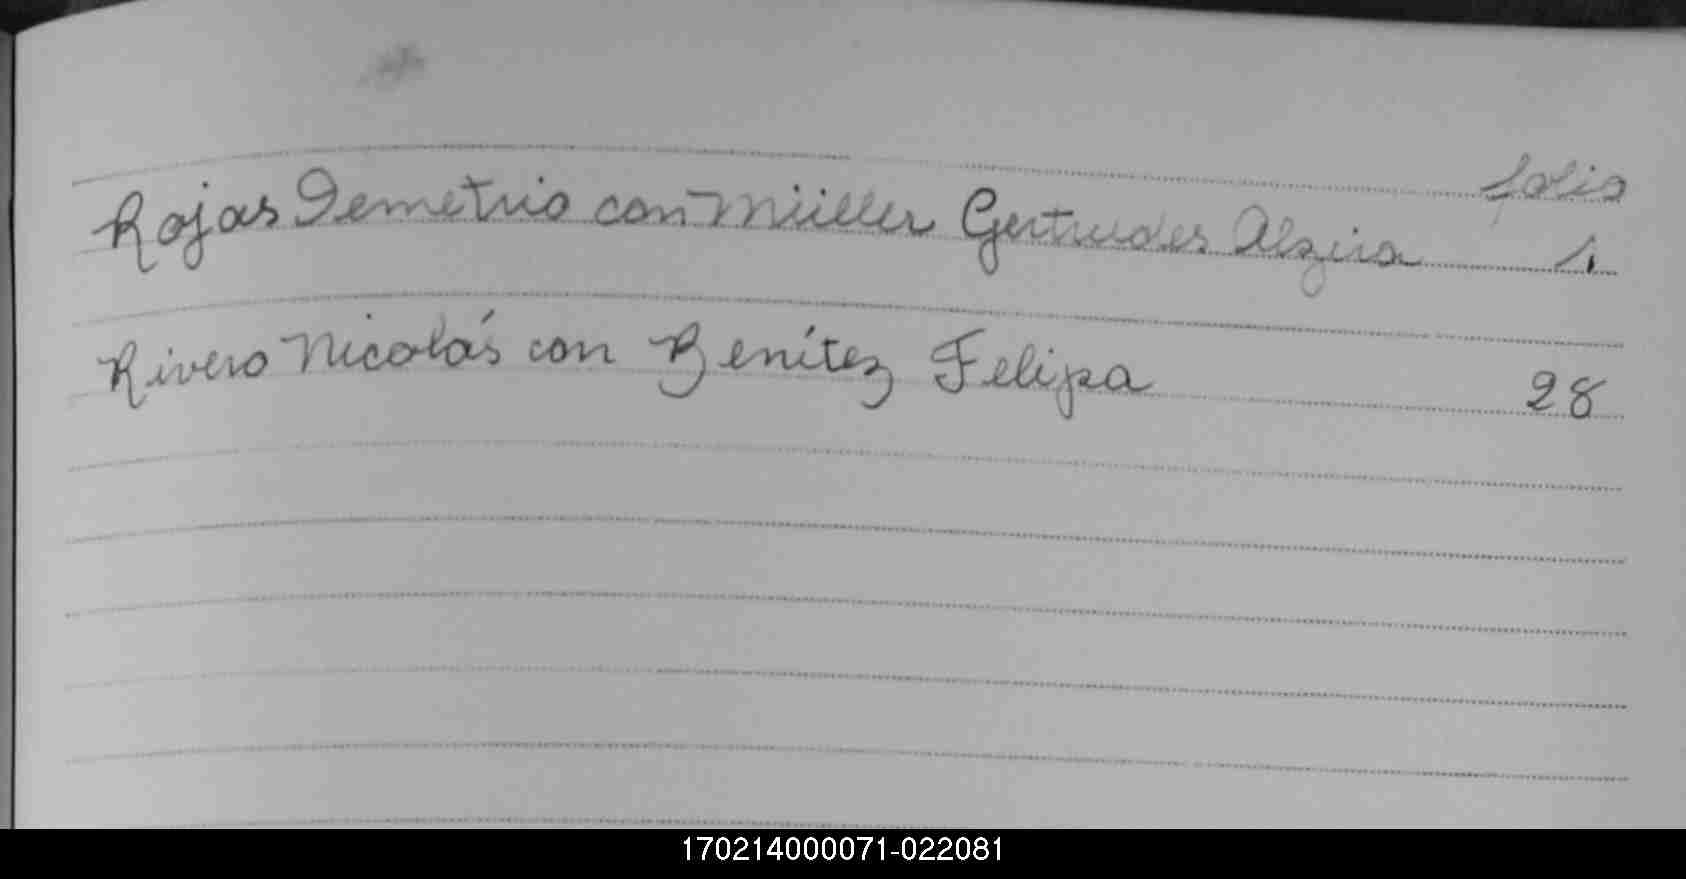 folio
Rojas Demetrio con Müller Gertrudes Alzira 1.
Rivero Nicolás con Benítez Felipa 28
170214000071-022081